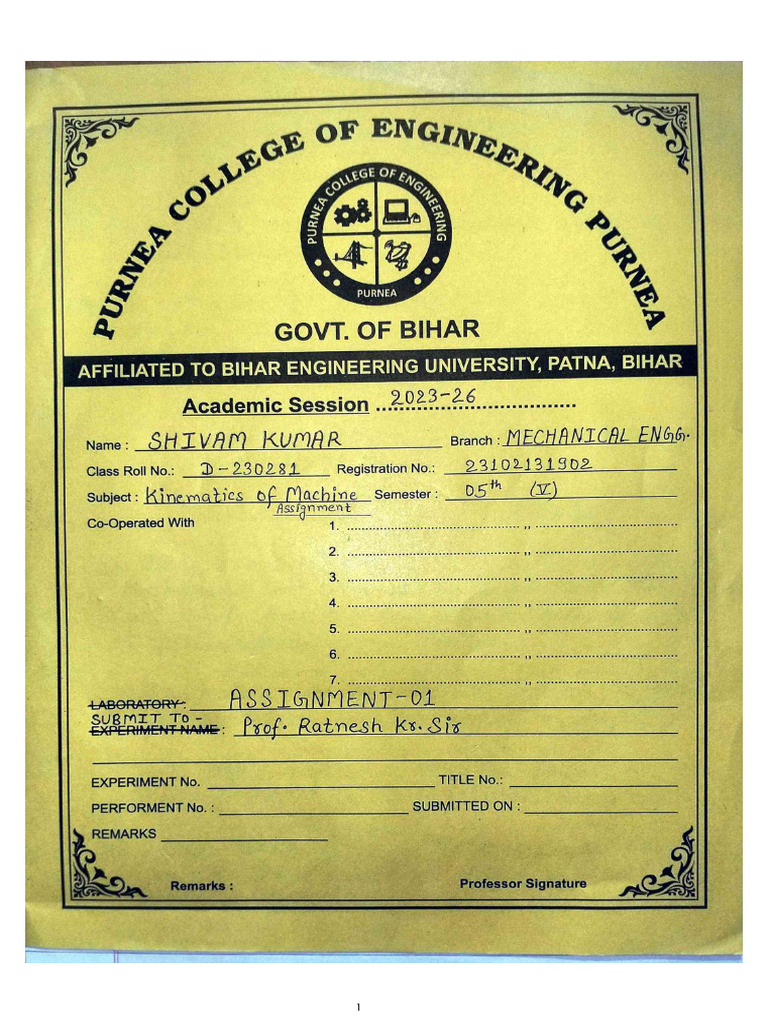 PURNEA COLLEGE OF ENGINEERING PURNEA
PURNEA COLLEGE OF ENGINEERING
PURNEA
GOVT. OF BIHAR
AFFILIATED TO BIHAR ENGINEERING UNIVERSITY, PATNA, BIHAR
Academic Session 2023-26
Name : SHIVAM KUMAR Branch : MECHANICAL ENGG.
Class Roll No.: D-230281 Registration No.: 23102131902
Subject : Kinematics of Machine Semester : 05th (V)
Assignment
Co-Operated With 1. ,,
2. ,,
3. ,,
4. ,,
5. ,,
6. ,,
7. ,,
LABORATORY : ASSIGNMENT-01
SUBMIT TO -
EXPERIMENT NAME : Prof. Ratnesh Kr. Sir
EXPERIMENT No. TITLE No.:
PERFORMENT No. : SUBMITTED ON :
REMARKS
Remarks : Professor Signature
1